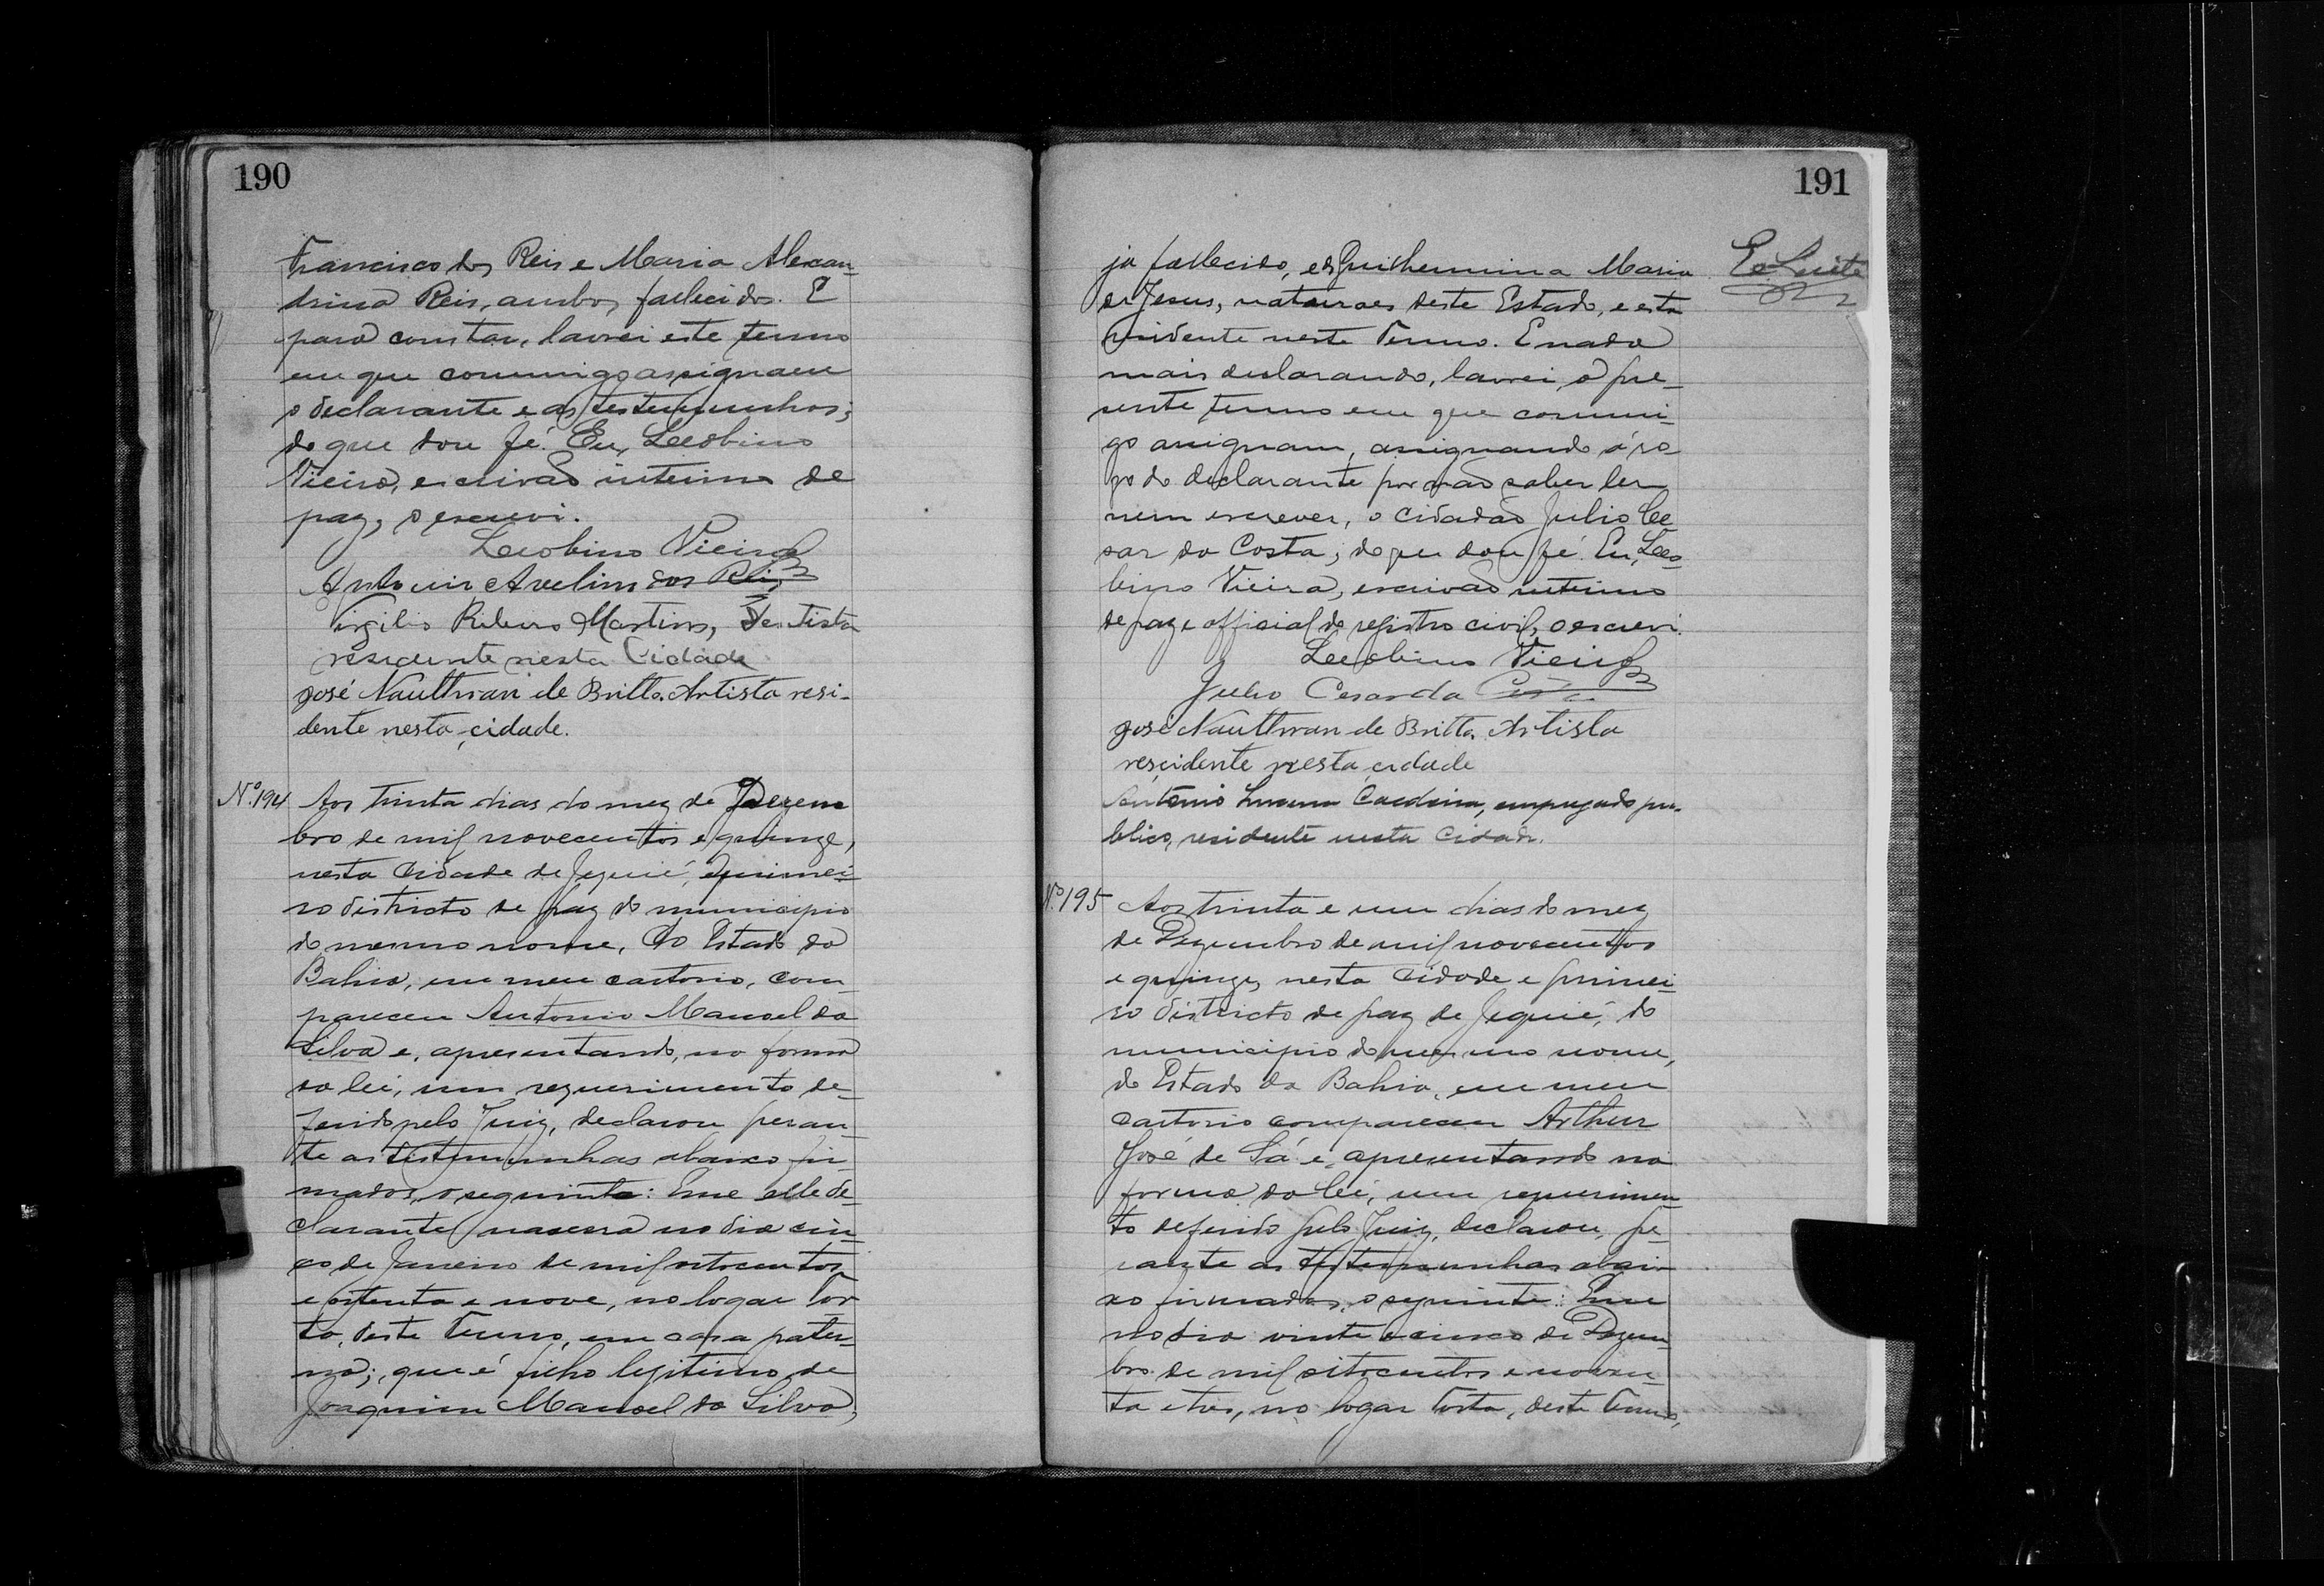 190
Francisco dos Reis e Maria Alexan-
drina Reis, ambos fallecidos. E
para constar, lavrei este termo
em que commigo assignam
o declarante e as testemunhas;
do que dou fé. Eu, Leobino
Vieira, escrivão interino de
paz, o escrevi.
Leobino Vieira
Antonio Avelino dos Reis
Virgilio Ribeiro Martins, Dentista
residente nesta Cidade
José Naultwan de Britto. Artista resi-
dente nesta cidade.
Nº 194 Aos trinta dias do mez de Dezem
bro de mil novecentos e quinze,
nesta Cidade de Jequié, e primei-
ro districto de paz do municipio
do mesmo nome, do Estado da
Bahia, em meu cartorio, com-
pareceu Antonio Manoel da
Silva e, apresentando, na forma
da lei, um requerimento de-
ferido pelo Juiz, declarou peran-
te as testemunhas abaixo fir-
madas, o seguinte: Que elle de-
clarante nascera no dia cin-
co de Janeiro de mil oitocentos
e oitenta e nove, no logar Tor
to, deste Termo, em casa pater-
na; que é filho legitimo de
Joaquim Manoel da Silva,
191
já fallecido, e de Guilhermina Maria
de Jesus, naturaes deste Estado, e esta
residente neste Termo. E nada
mais declarando, lavrei, o pre-
sente termo em que commi-
go assignam, assignando á ro
go do declarante por não saber ler
nem escrever, o cidadão Julio Ce
sar da Costa; do que dou fé. Eu, Leo-
bino Vieira, escrivão interino
de paz e official do registro civil, o escrevi.
Leobino Vieira
Julio Cesar da Costa
José Naultwan de Britto. Artista
rescidente nesta cidade
Antonio Lucena, empregado pu-
blico, residente nesta Cidade.
Nº 195 Aos trinta e um dias do mez
de Dezembro de mil novecentos
e quinze, nesta Cidade e primei-
ro districto de paz de Jequié, do
municipio do mesmo nome,
do Estado da Bahia, em meu
cartorio compareceu Arthur
José de Sá e, apresentando na
forma da lei, um requerimen-
to deferido pelo Juiz, declarou, pe-
rante as testemunhas abai-
xo firmadas, o seguinte: Que
no dia vinte e cinco de Dezem-
bro de mil oitocentos e noven-
ta e tres, no logar Torto, deste Termo,